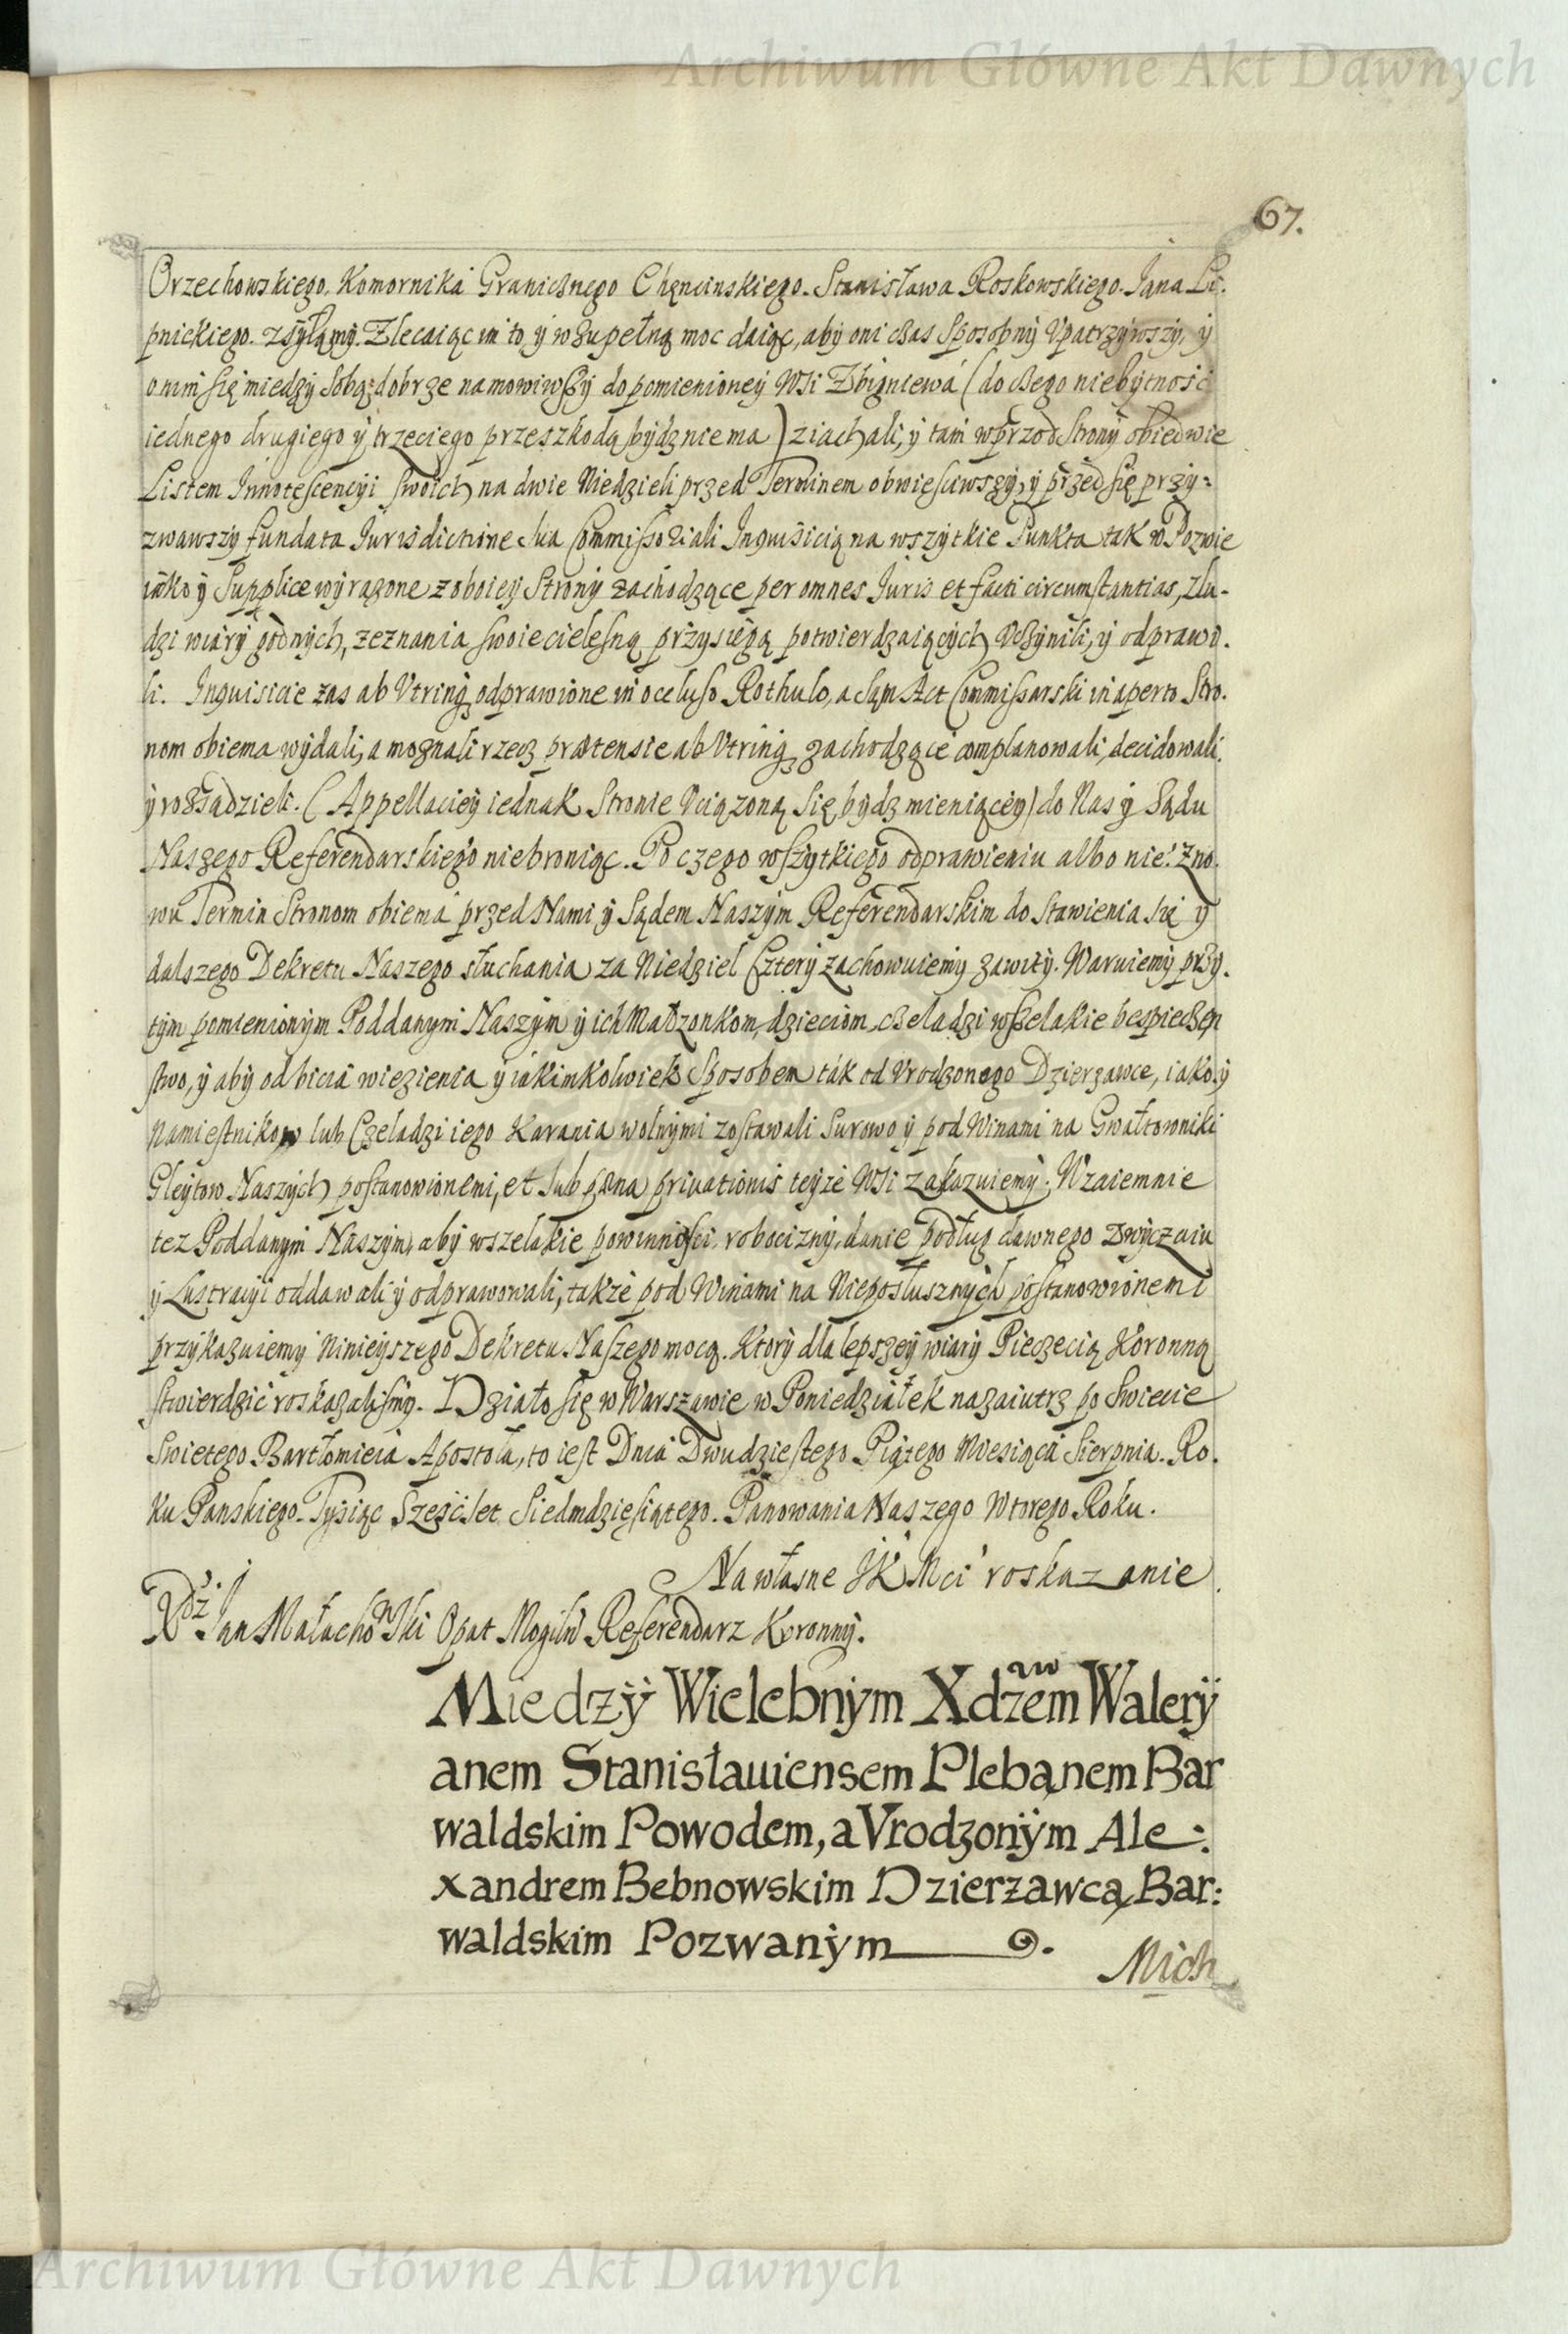 Archiwum Główne Akt Dawnych
67.
Orzechowskiego. Komornika Granicznego Chęncinskiego. Stanisława Roskowskiego. Jana Li.
pnickiego. zsyłamy. Zlecaiąc im to, y wzupełną moc daiąc, aby oni czas sposobny Vpatrzywszy, y
o nim się miedzy sobą dobrze namowiwszy do pomienioney Wsi Zbigniewa (do czego niebytność
iednego drugiego y trzeciego przeszkodą bydz niema) ziachali, y tam wprzod Strony obiedwie
Listem Innotescencyi swoich na dwie Niedzieli przed Terminem obwiesciwszy, y przed się przy:
zwawszy fundata Jurisdictione sua Commissoriali Inquisicią na wszytkie Punkta tak w Pozwie
iako y Supplice wyrazone z oboiey Strony zachodzące per omnes Juris et facti circumstantias, z lu-
dzi wiary godnych, zeznania swoie cielesną przysięgą potwierdzaiących Vczynili, y odprawi.
li. Inquisicie zas ab Vtrinq odprawione in occluso Rothulo, a sąm Act Commissarski in aperto Stro.
nom obiema wydali, a moznali rzecz prætensie ab Vtrinq zachodzące complanowali, decidowali.
y rozsadzieli. (Appellaciey iednak Stronie Vciązoną się bydz mieniącey) do Nas y Sądu
Naszego Referendarskiego niebroniąc. Po czego wszytkiego odprawieniu albo nie: Zno.
wu Termin Stronom obiema przed Nami y Sądem Naszym Referendarskim do stawienia się y
dalszego Dekretu Naszego słuchania za Niedziel Cztery zachowuiemy zawity. Waruiemy przy.
tym pomienionym Poddanym Naszym y ich Małzonkom, dzieciom czeladzi wszelakie bespieczen
stwo, y aby od bicia wiezienia y iakimkolwiek sposobem ták od Vrodzonego Dzierzawce, iako y
Namiestnikow lub Czeladzi iego Karania wolnymi zostawali surowo y pod Winami na Gwałtowniki
Gleytow Naszych postanowionemi, et sub pœna privationis teyże Wsi zakazuiemy. Wzaiemnie
tez Poddanym Naszym, aby wszelakie powinności, robocizny, danie podług dawnego zwyczaiu
y Lustracyi oddawali y odprawowali, także pod Winami na Nieposłusznych postanowionemi
przykazuiemy Ninieyszego Dekretu Naszego mocą. Ktory dla lepszey wiary Pieczecią Koronną
stwierdzić roskazalismy. Działo się w Warszawie w Poniedziałek nazaiutrz po Swiecie
Swietego Bartłomieia Apostoła, to iest Dnia Dwudziestego Piątego Miesiąca Sierpnia. Ro.
ku Panskiego. Tysiąc Sześćset Siedmdziesiątego. Panowania Naszego Wtorego Roku.
Na własne JKMci roskazanie.
Xdz Jan Małachowski Opat Mogilń Referendarz Koronny.
Miedzy Wielebnym Xdzem Walery
anem Stanisłauiensem Plebanem Bar
waldskim Powodem, a Vrodzonym Ale:
xandrem Bebnowskim Dzierzawcą Bar:
waldskim Pozwanym
Mich
Archiwum Główne Akt Dawnych